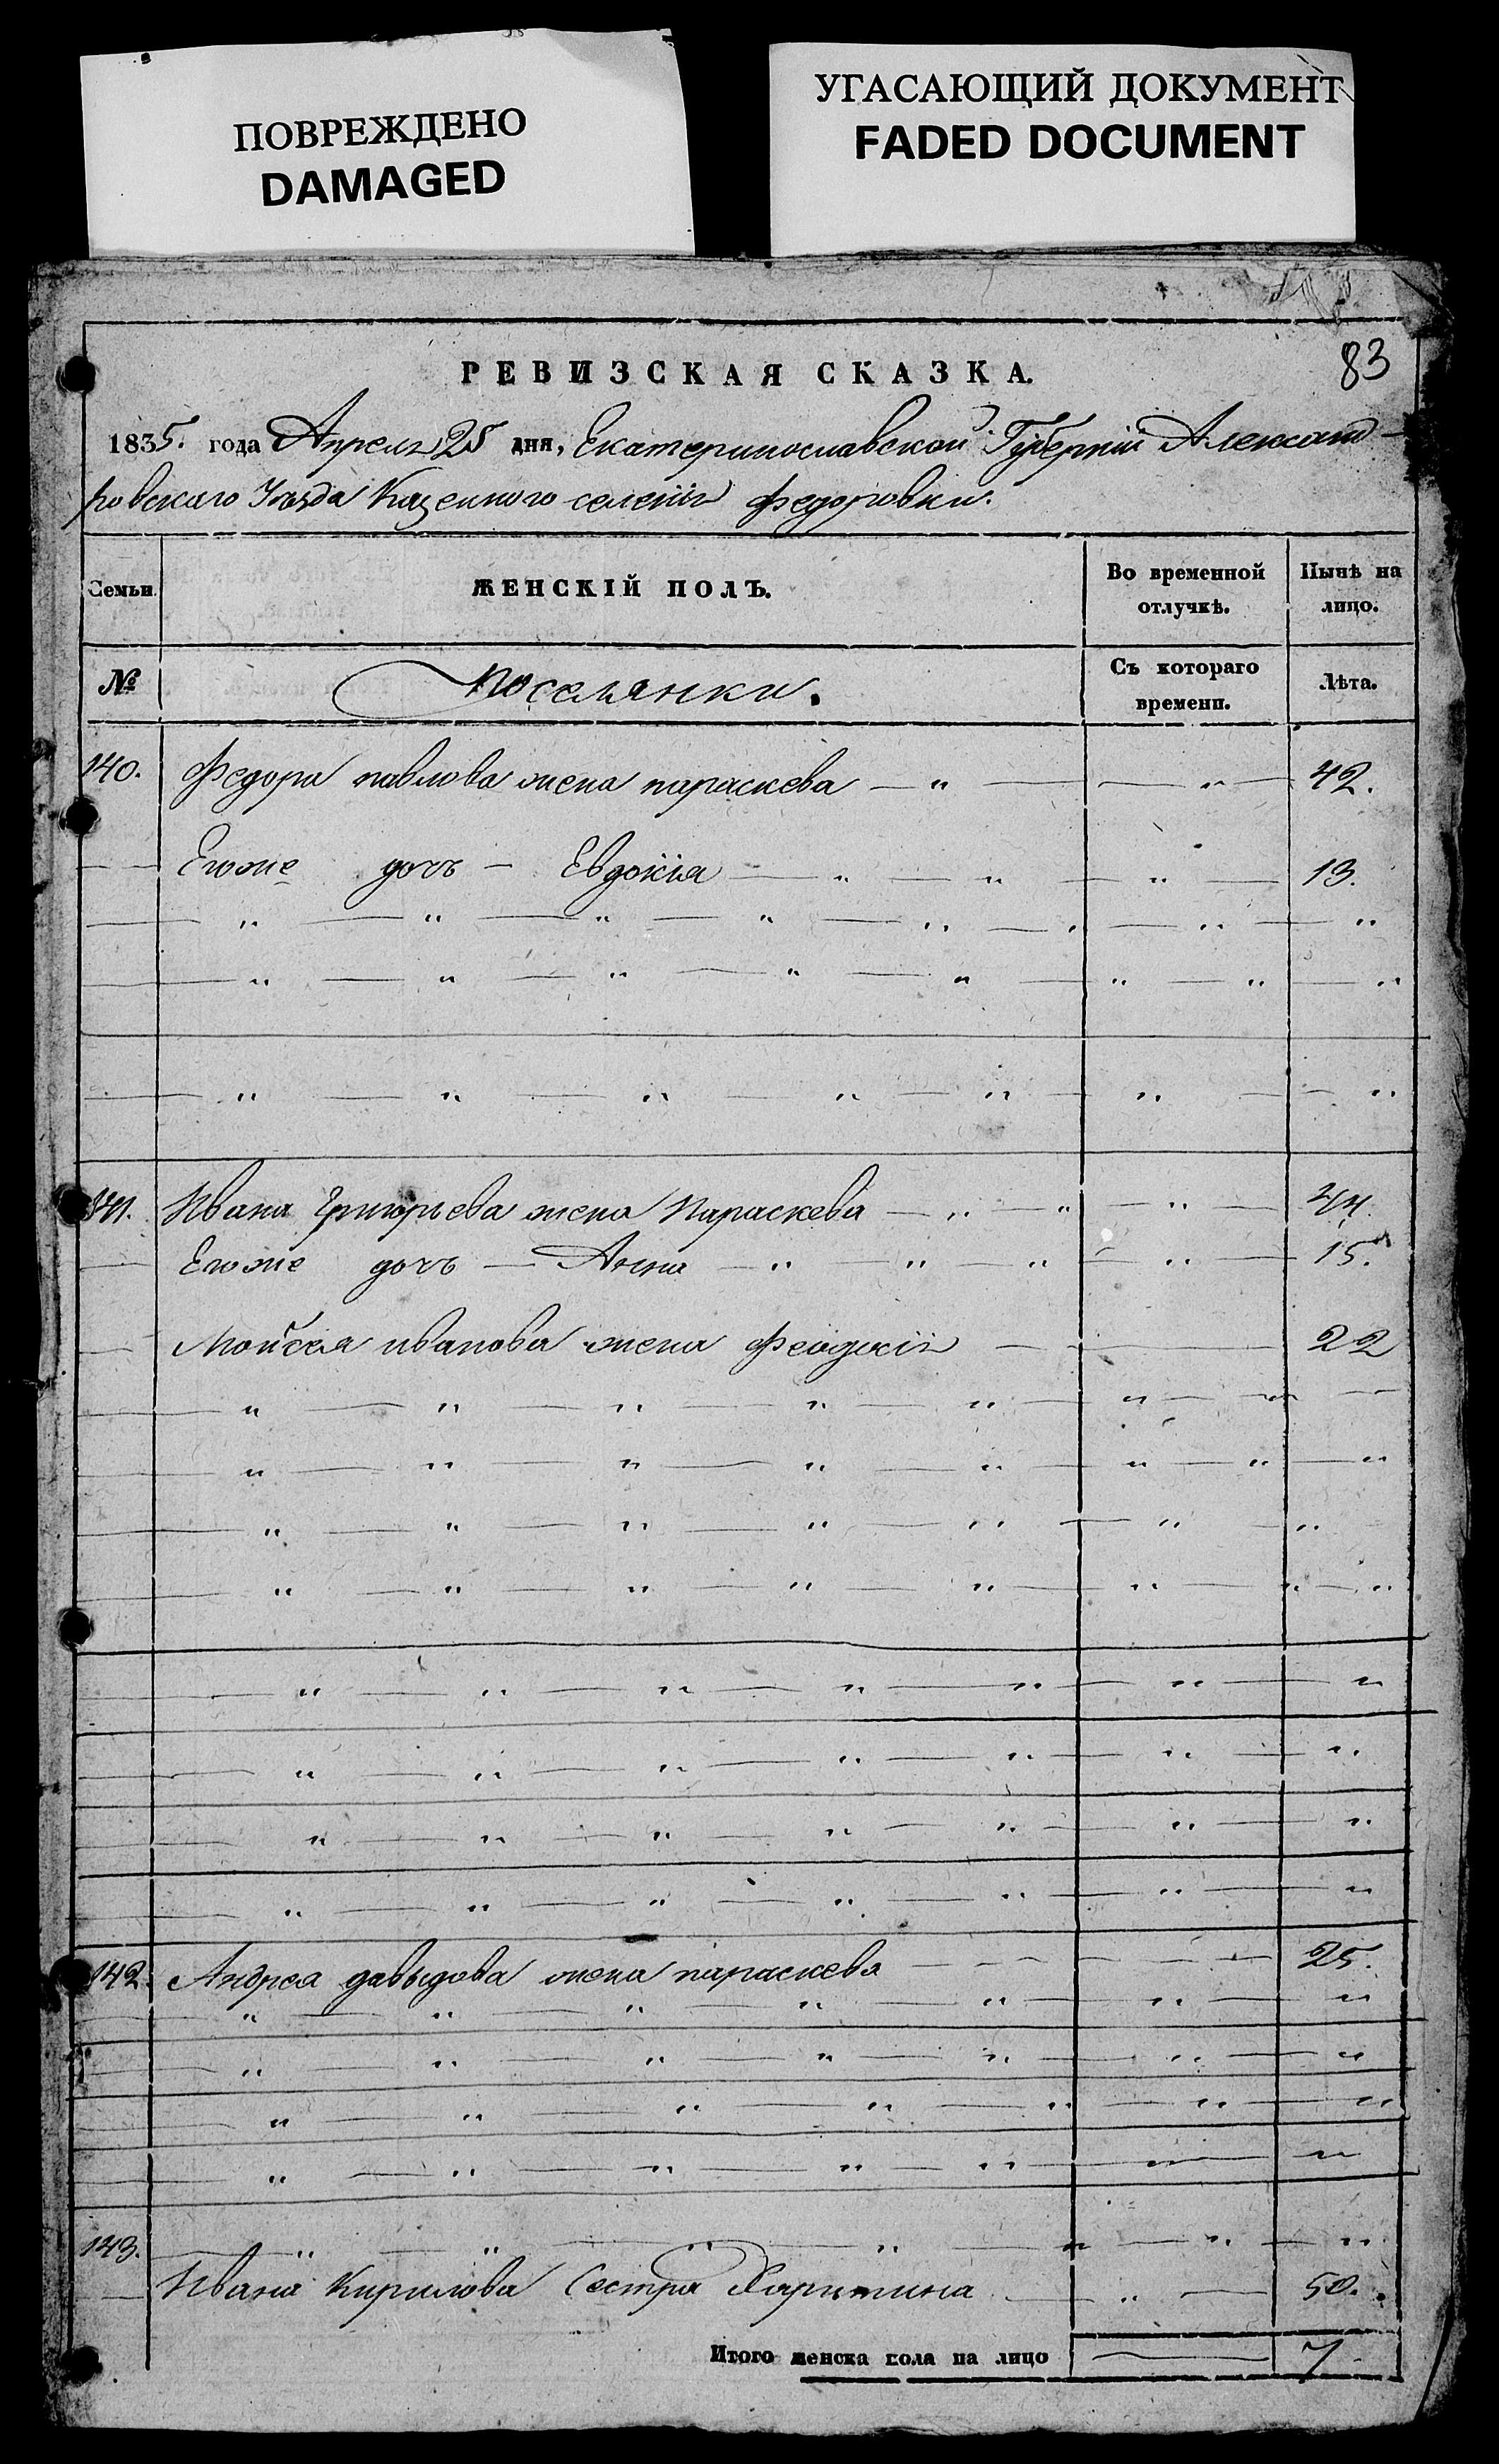 ПОВРЕЖДЕНО
DAMAGED
УГАСАЮЩИЙ ДОКУМЕНТ
FADED DOCUMENT
83
РЕВИЗСКАЯ СКАЗКА.
1835. года Апреля 25 дня, Екатеринославской Губерніи Александ-
ровскаго Уезда Казенного селенія Федоровки.
Семьи ЖЕНСКІЙ ПОЛЪ. Во временной отлучкѣ. Нынѣ на лицо.
№ Поселянки. Съ котораго времени. Лѣта.
140. Федора павлова жена параскева — " — — " — 42.
Егоже дочъ — Евдокія — " — " — " — 13.
141. Ивана Григорьева жена Параскева — " — " — " — 44.
Егоже дочъ — Анна — " — " — " — " — 15.
Мойсея иванова жена Феодосія — — 22
142. Андрея давыдова жена параскева — — — 25.
143.
Ивана Кирилова Сестра Харитина — " — 50.
Итого женска пола на лицо — 7